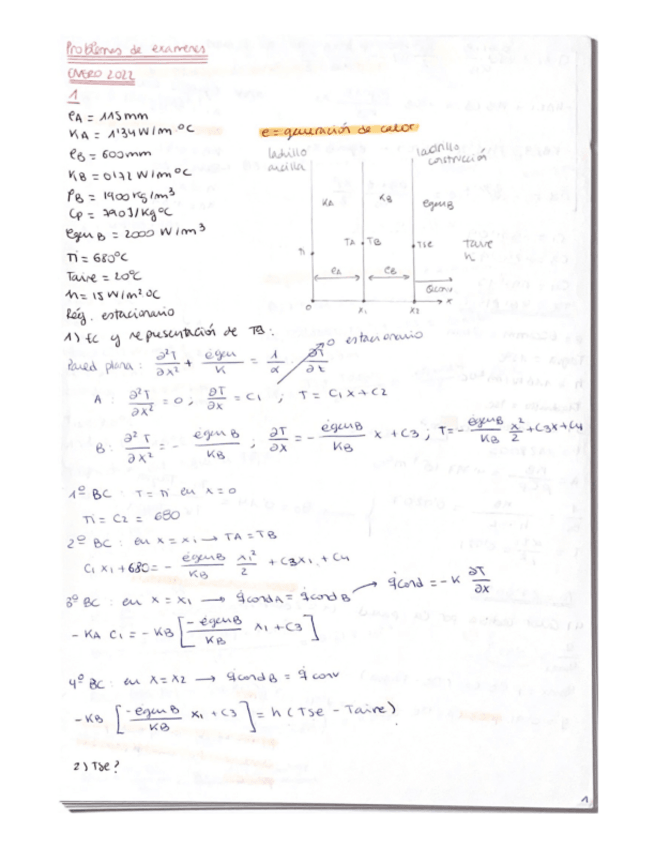 Problemas de exámenes
ENERO 2022
1
eA = 115mm
KA = 1'34 W/m ºC
e = generación de calor
eB = 600mm
KB = 0'172 W/m ºC
ρB = 1900 kg/m³
Cp = 790 J/kg ºC
egen B = 2000 W/m³
Ti = 680ºC
Taire = 20ºC
h = 15 W/m² ºC
Rég. estacionario
ladrillo arcilla
ladrillo construcción
KA
KB
egenB
Ti
TA
TB
Tse
Taire
h
eA
eB
Qconv
0
x1
x2
x
1) fc y representación de TB:
Pared plana: ∂²T/∂x² + ėgen/K = 1/α ∂T/∂t 0 estacionario
A: ∂²T/∂x² = 0; ∂T/∂x = C1; T = C1x + C2
B: ∂²T/∂x² = - ėgenB/KB; ∂T/∂x = - ėgenB/KB x + C3; T = - ėgenB/KB x²/2 + C3x + C4
1º BC: T = Ti en x = 0
Ti = C2 = 680
2º BC: en x = x1 → TA = TB
C1 x1 + 680 = - ėgenB/KB x1²/2 + C3x1 + C4
3º BC: en x = x1 → q̇condA = q̇condB → q̇cond = -K ∂T/∂x
- KA C1 = - KB [ -ėgenB/KB x1 + C3 ]
4º BC: en x = x2 → q̇condB = q̇conv
- KB [ -ėgenB/KB x1 + C3 ] = h (Tse - Taire)
2) Tse?
1